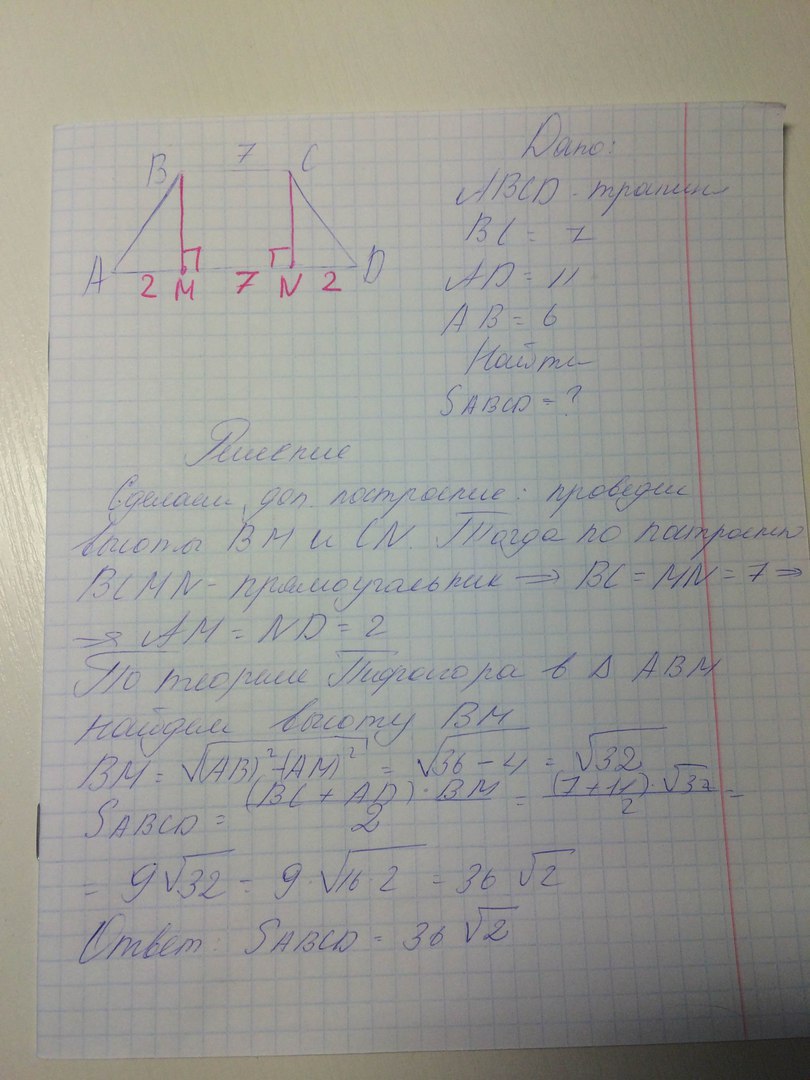 7
B C
A D
2 M 7 N 2
Дано:
ABCD - трапец
BC = 7
AD = 11
AB = 6
Найти
SABCD = ?
Решение
Сделаем доп. построение: проведем
высоты BM и CN. Тогда по построению
BCMN - прямоугольник => BC = MN = 7 =>
=> AM = ND = 2
По теореме Пифагора в Δ ABM
найдем высоту BM
BM = √(AB)²-(AM)² = √36-4 = √32
SABCD = (BC + AD) · BM / 2 = (7+11) · √32 / 2 =
= 9√32 = 9·√16·2 = 36 √2
Ответ: SABCD = 36 √2